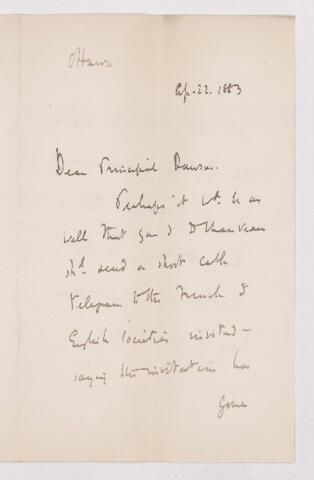 Ottawa.
Ap. 22. 1883
Dear Principal Dawson.
Perhaps it wd. be as
well that you & Dr Chauveau
shd. send a short cable
telegram to the French &
English societies invited -
saying the invitation has
gone